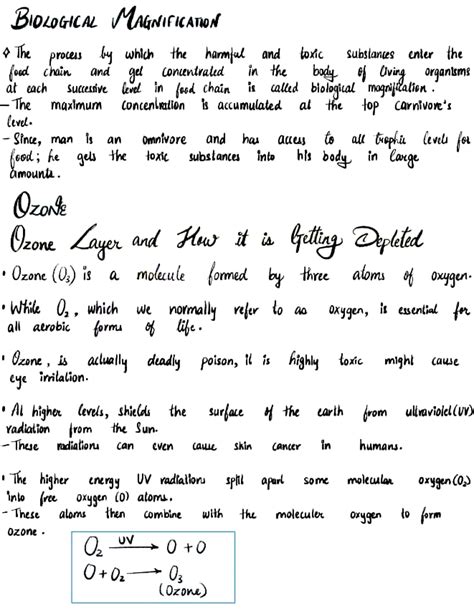 BIOLOGICAL MAGNIFICATION
❖ The process by which the harmful and toxic substances enter the
food chain and get concentrated in the body of living organisms
at each successive level in food chain is called biological magnification.
- The maximum concentration is accumulated at the top carnivore's
level.
- Since, man is an omnivore and has access to all trophic levels for
food; he gets the toxic substances into his body in large
amounts.
OZONE
Ozone Layer and How it is Getting Depleted
• Ozone (O₃) is a molecule formed by three atoms of oxygen.
• While O₂, which we normally refer to as oxygen, is essential for
all aerobic forms of life.
• Ozone, is actually deadly poison, it is highly toxic might cause
eye irritation.
• At higher levels, shields the surface of the earth from ultraviolet (UV)
radiation from the Sun.
- These radiations can even cause skin cancer in humans.
• The higher energy UV radiations split apart some molecular oxygen (O₂)
into free oxygen (O) atoms.
- These atoms then combine with the molecular oxygen to form
ozone.
O₂ —UV→ O + O
O + O₂ → O₃
(Ozone)